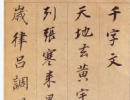 千字文
天地玄黃宇
列張寒來暑
歲律呂調